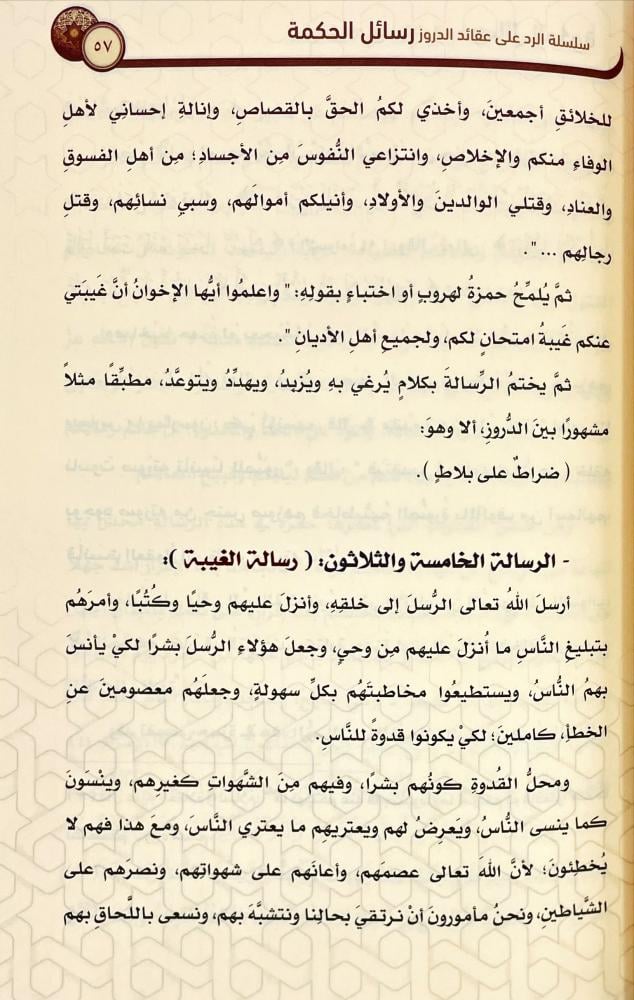 سلسلة الرد على عقائد الدروز رسائل الحكمة
٥٧
للخلائقِ أجمعينَ، وأخذي لكمُ الحقَّ بالقصاصِ، وإنالةِ إحساني لأهلِ
الوفاءِ منكم والإخلاصِ، وانتزاعي النُّفوسَ مِن الأجسادِ؛ مِن أهلِ الفسوقِ
والعنادِ، وقتلي الوالدينَ والأولادِ، وأنيلكم أموالَهم، وسبيِ نسائِهم، وقتلِ
رجالِهم ... ".
ثمَّ يُلمِّحُ حمزةُ لهروبٍ أو اختباءٍ بقولِهِ: " واعلموا أيُّها الإخوانُ أنَّ غَيبَتي
عنكم غَيبةُ امتحانٍ لكم، ولجميعِ أهلِ الأديانِ ".
ثمَّ يختمُ الرِّسالةَ بكلامٍ يُرغي بهِ ويُزبِدُ، ويهدِّدُ ويتوعَّدُ، مطبِّقًا مثلاً
مشهورًا بينَ الدُّروزِ، ألا وهوَ:
( ضراطٌ على بلاطٍ ).
- الرسالة الخامسة والثلاثون: ( رسالة الغيبة ):
أرسلَ اللهُ تعالى الرُّسلَ إلى خلقِهِ، وأنزلَ عليهم وحيًا وكُتُبًا، وأمرَهُم
بتبليغِ النَّاسِ ما أُنزلَ عليهم مِن وحيٍ، وجعلَ هؤلاءِ الرُّسلَ بشرًا لكيْ يأنسَ
بهمُ النَّاسُ، ويستطيعُوا مخاطبتَهُم بكلِّ سهولةٍ، وجعلَهُم معصومينَ عنِ
الخطأِ، كاملينَ؛ لكيْ يكونوا قدوةً للنَّاسِ.
ومحلُّ القُدوةِ كونُهم بشرًا، وفيهم مِنَ الشَّهواتِ كغيرِهم، وينْسَونَ
كما ينسى النَّاسُ، ويَعرِضُ لهم ويعتريهِم ما يعتري النَّاسَ، ومعَ هذا فهم لا
يُخطِئونَ؛ لأنَّ اللهَ تعالى عصمَهم، وأعانَهم على شهواتِهم، ونصرَهم على
الشَّياطينِ، ونحنُ مأمورونَ أنْ نرتقيَ بحالِنا ونتشبَّهَ بهم، ونسعى باللَّحاقِ بهم